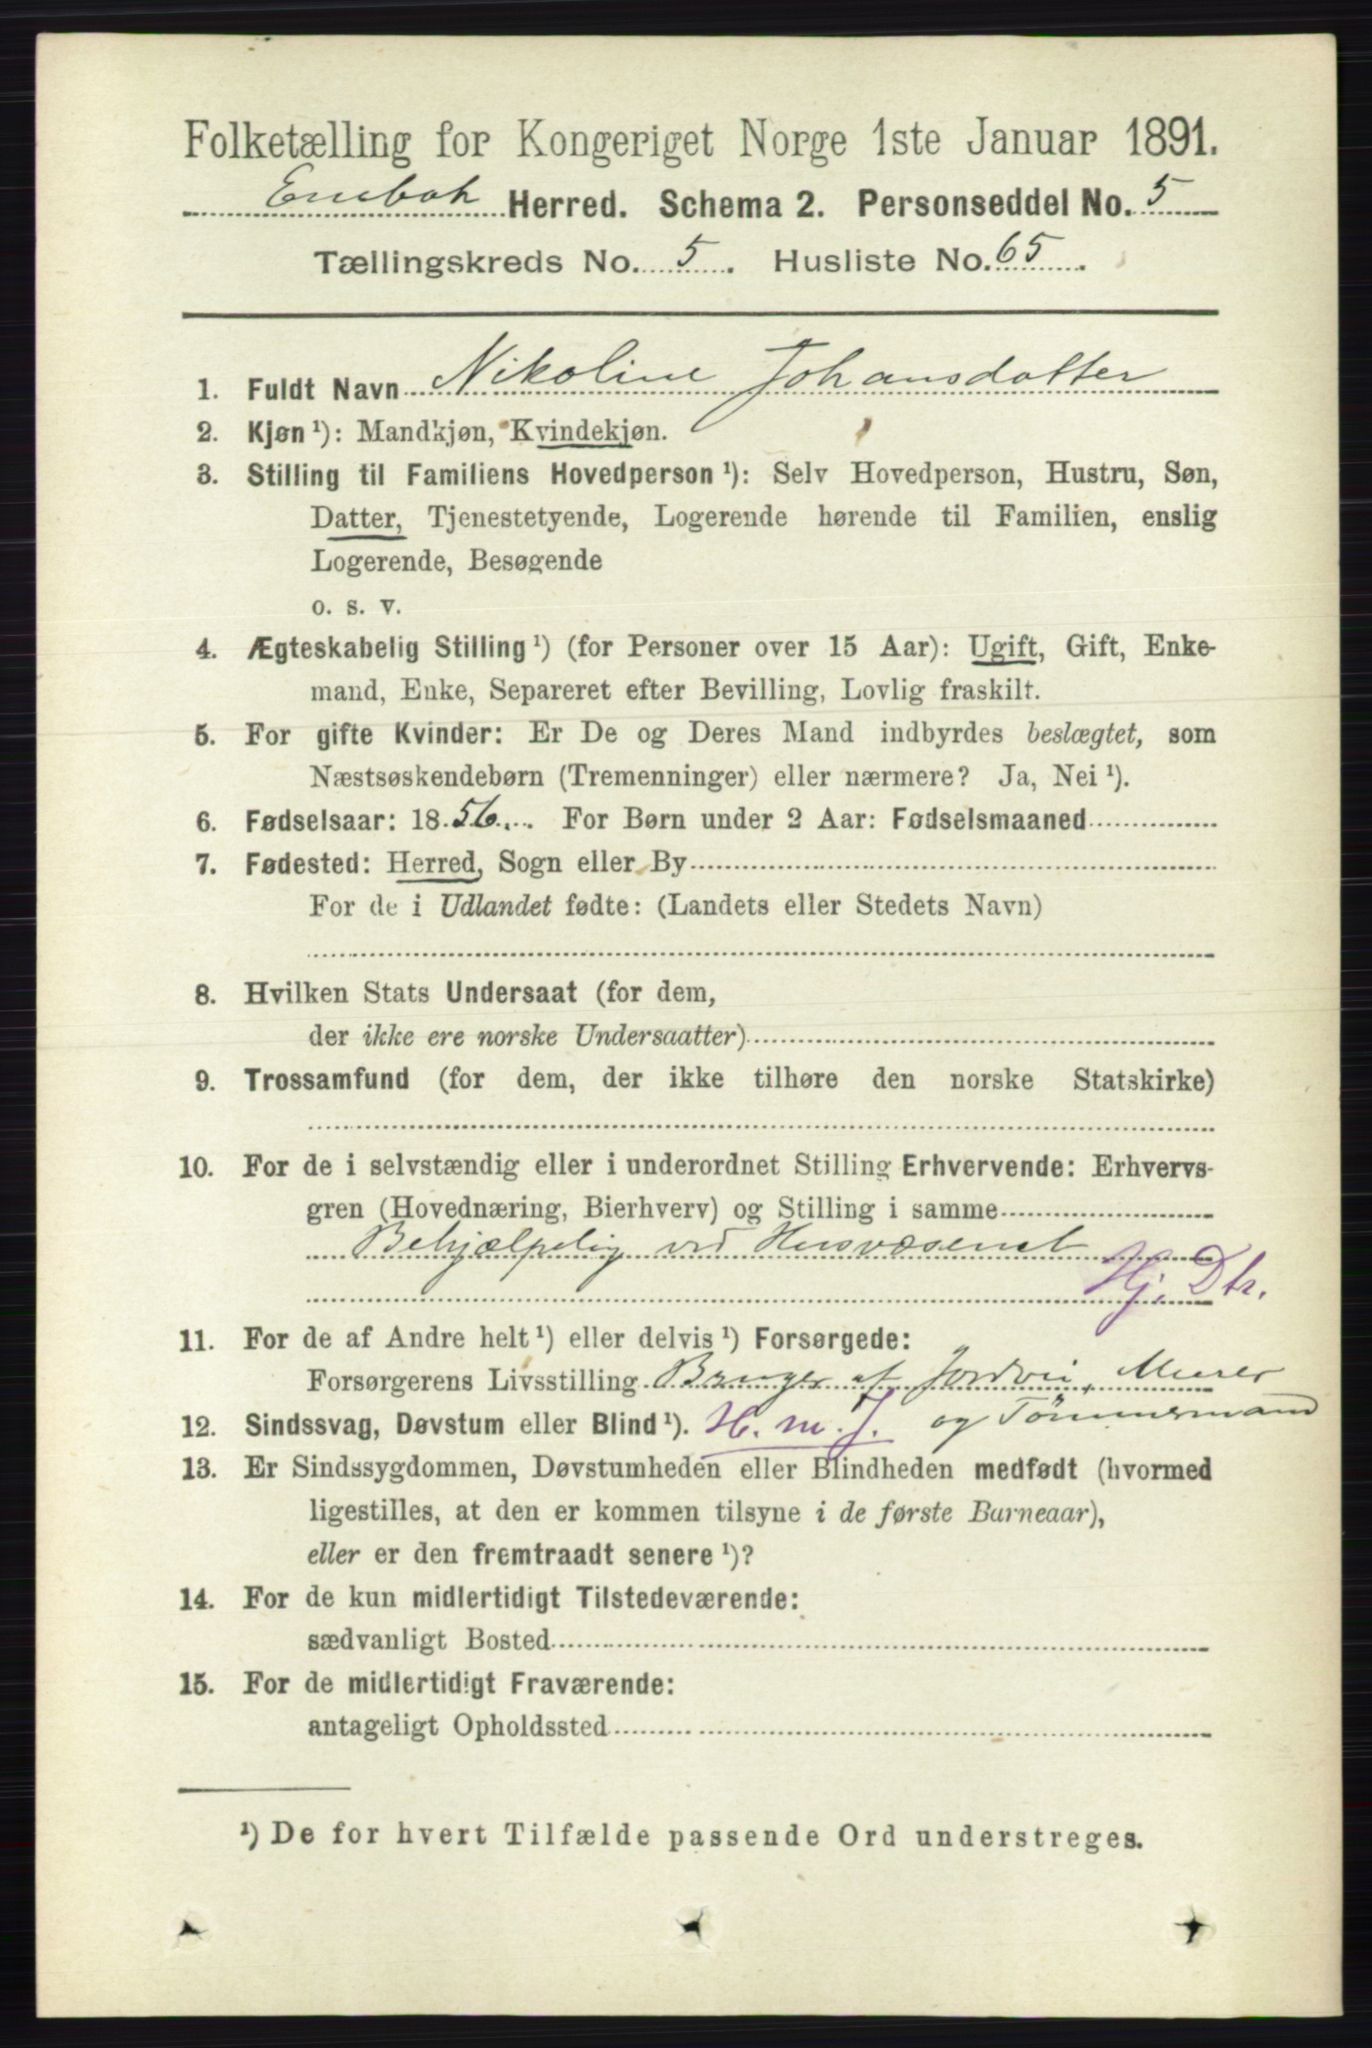 Folketælling for Kongeriget Norge 1ste Januar 1891.
Enebak Herred. Schema 2. Personseddel No. 5
Tællingskreds No. 5. Husliste No. 65.
1. Fuldt Navn Nikoline Johansdatter
2. Kjøn¹): Mandkjøn, Kvindekjøn.
3. Stilling til Familiens Hovedperson¹): Selv Hovedperson, Hustru, Søn,
Datter, Tjenestetyende, Logerende hørende til Familien, enslig
Logerende, Besøgende
o. s. v.
4. Ægteskabelig Stilling¹) (for Personer over 15 Aar): Ugift, Gift, Enke-
mand, Enke, Separeret efter Bevilling, Lovlig fraskilt.
5. For gifte Kvinder: Er De og Deres Mand indbyrdes beslægtet, som
Næstsøskendebørn (Tremenninger) eller nærmere? Ja, Nei¹).
6. Fødselsaar: 1856. For Børn under 2 Aar: Fødselsmaaned
7. Fødested: Herred, Sogn eller By
For de i Udlandet fødte: (Landets eller Stedets Navn)
8. Hvilken Stats Undersaat (for dem,
der ikke ere norske Undersaatter)
9. Trossamfund (for dem, der ikke tilhøre den norske Statskirke)
10. For de i selvstændig eller i underordnet Stilling Erhvervende: Erhvervs-
gren (Hovednæring, Bierhverv) og Stilling i samme
Behjælpelig ved Husvæsenet
Hj. Dtr.
11. For de af Andre helt¹) eller delvis¹) Forsørgede:
Forsørgerens Livsstilling Bruger af Jordvei, Murer
og Tömmermand
12. Sindssvag, Døvstum eller Blind¹). H. m. J.
13. Er Sindssygdommen, Døvstumheden eller Blindheden medfødt (hvormed
ligestilles, at den er kommen tilsyne i de første Barneaar),
eller er den fremtraadt senere¹)?
14. For de kun midlertidigt Tilstedeværende:
sædvanligt Bosted
15. For de midlertidigt Fraværende:
antageligt Opholdssted
¹) De for hvert Tilfælde passende Ord understreges.